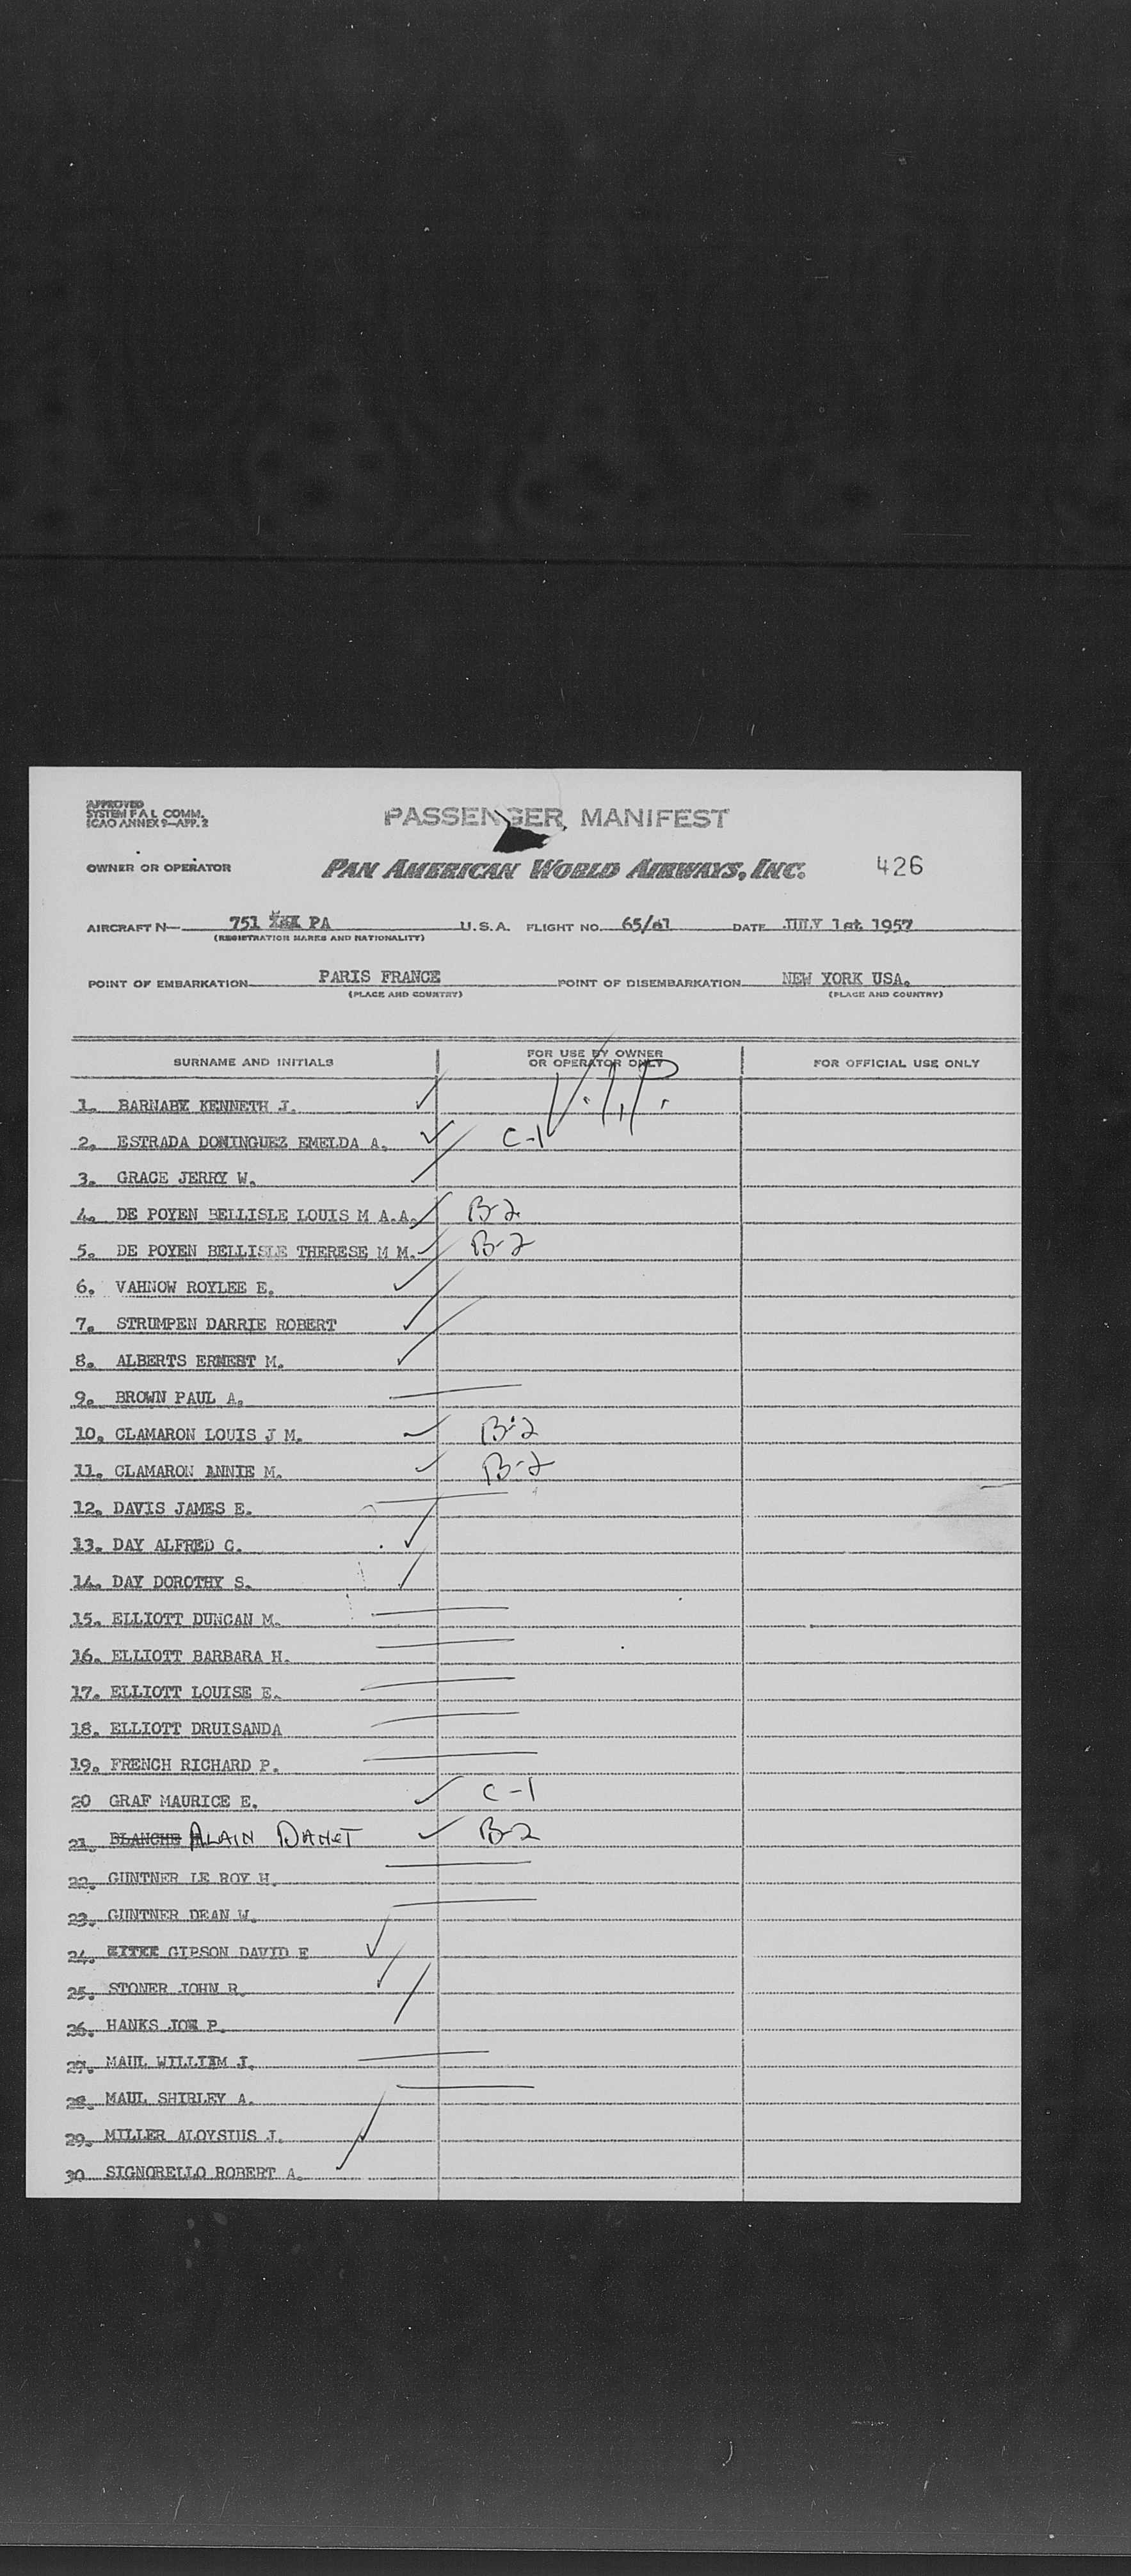 APPROVED
SYSTEM F A L COMM.
ICAO ANNEX 9—APP. 2
PASSENGER MANIFEST
OWNER OR OPERATOR PAN AMERICAN WORLD AIRWAYS, INC. 426
AIRCRAFT N— 751 PA U.S.A. FLIGHT NO. 65/61 DATE JULY 1st 1957
(REGISTRATION MARKS AND NATIONALITY)
POINT OF EMBARKATION PARIS FRANCE POINT OF DISEMBARKATION NEW YORK USA.
(PLACE AND COUNTRY) (PLACE AND COUNTRY)
SURNAME AND INITIALS FOR USE BY OWNER OR OPERATOR ONLY FOR OFFICIAL USE ONLY
1. BARNABY KENNETH J. V.I.P.
2. ESTRADA DOMINGUEZ EMELDA A. C-1
3. GRACE JERRY W.
4. DE POYEN BELLISLE LOUIS M A.A. B-2
5. DE POYEN BELLISLE THERESE M M. B-2
6. VAHNOW ROYLEE E.
7. STRUMPEN DARRIE ROBERT
8. ALBERTS ERNEST M.
9. BROWN PAUL A.
10. CLAMARON LOUIS J M. B-2
11. CLAMARON ANNIE M. B-2
12. DAVIS JAMES E.
13. DAY ALFRED C.
14. DAY DOROTHY S.
15. ELLIOTT DUNCAN M.
16. ELLIOTT BARBARA H.
17. ELLIOTT LOUISE E.
18. ELLIOTT DRUISANDA
19. FRENCH RICHARD P.
20 GRAF MAURICE E. C-1
21. BLANCHE ALAIN DANET B-2
22. GUNTNER LE ROY H.
23. GUNTNER DEAN W.
24. GIPSON DAVID E
25. STONER JOHN R.
26. HANKS JOE P.
27. MAUL WILLIAM J.
28. MAUL SHIRLEY A.
29. MILLER ALOYSIUS J.
30 SIGNORELLO ROBERT A.